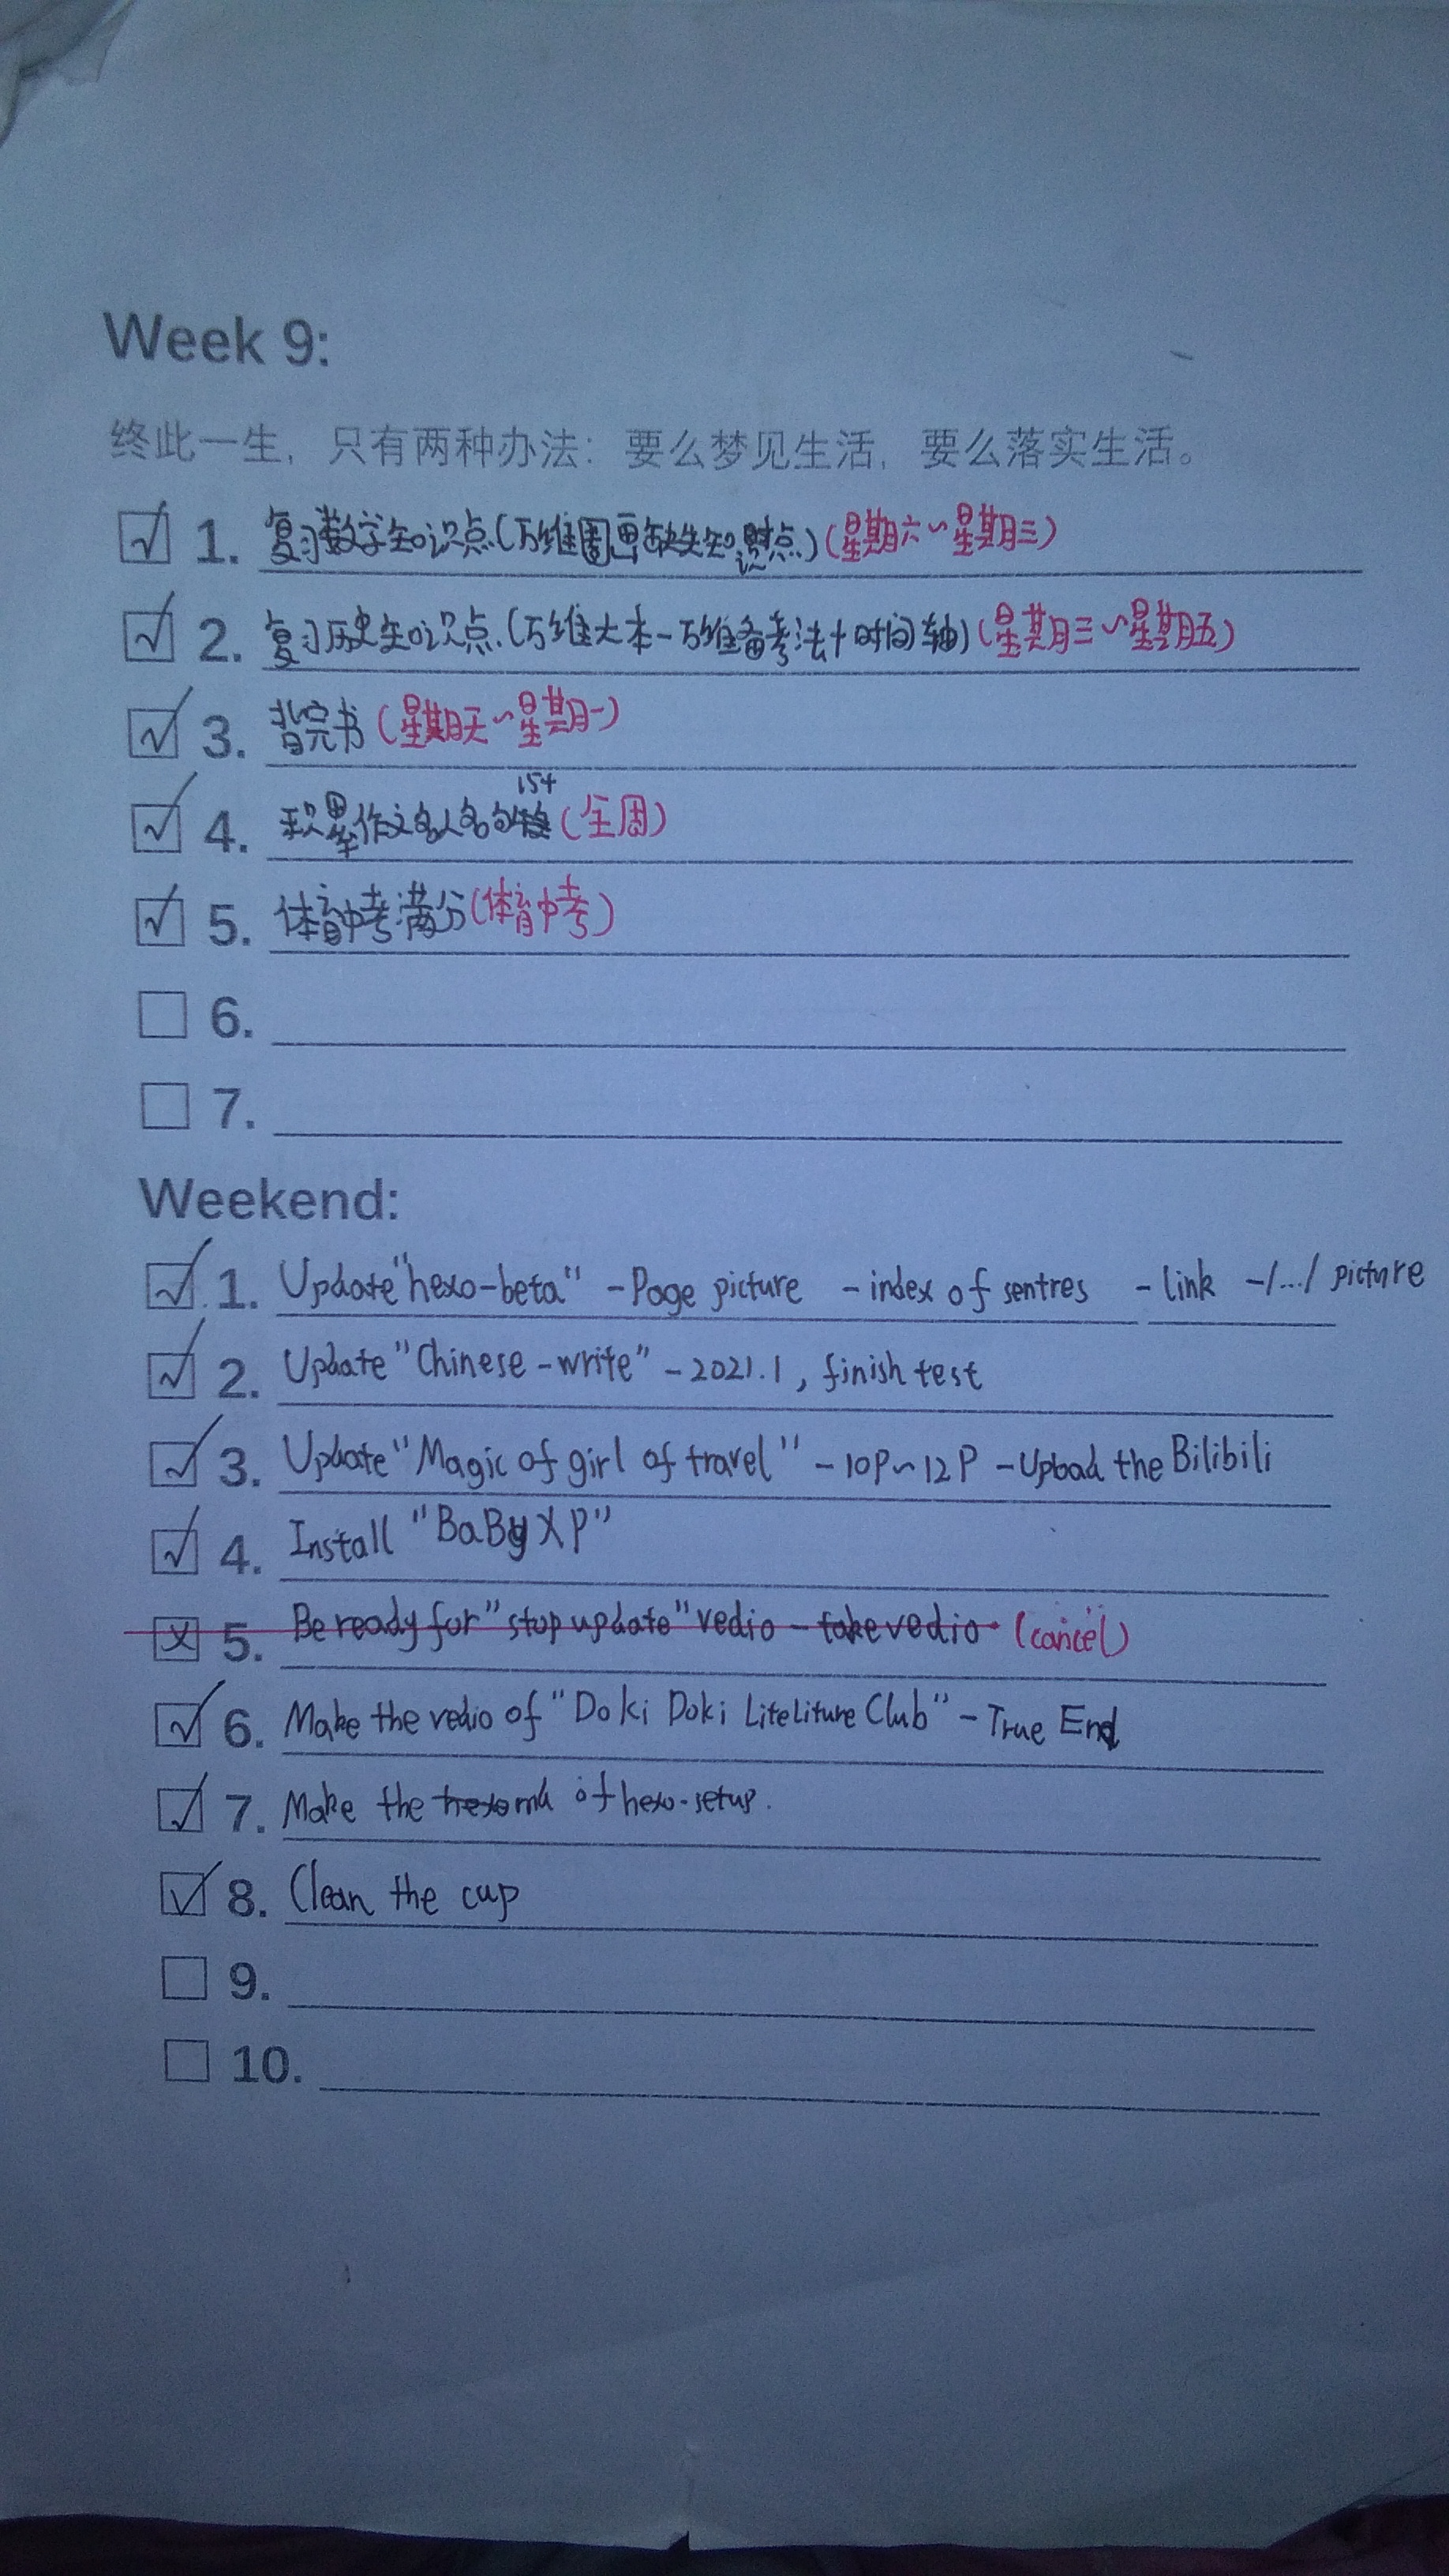 Week 9:
终此一生，只有两种办法：要么梦见生活，要么落实生活。
1. 复习数学知识点(万维圈画缺失知识点)(星期六~星期三)
2. 复习历史知识点.(万维大本-万维备考法+时间轴)(星期三~星期五)
3. 背完书(星期天~星期一)
4. 积累作文名人名句 15个(全周)
5. 体育中考满分(体育中考)
6.
7.
Weekend:
1. Update "hexo-beta" -Page picture -index of sentres -link -/.../ picture
2. Update "Chinese-write" -2021.1, finish test
3. Update "Magic of girl of travel" -10P~12P -Upload the Bilibili
4. Install "BaByXP"
5. Be ready for "stop update" vedio - take vedio (cancel)
6. Make the vedio of "Doki Doki LiteLiture Club" - True End
7. Make the of hexo-setup.
8. Clean the cup
9.
10.